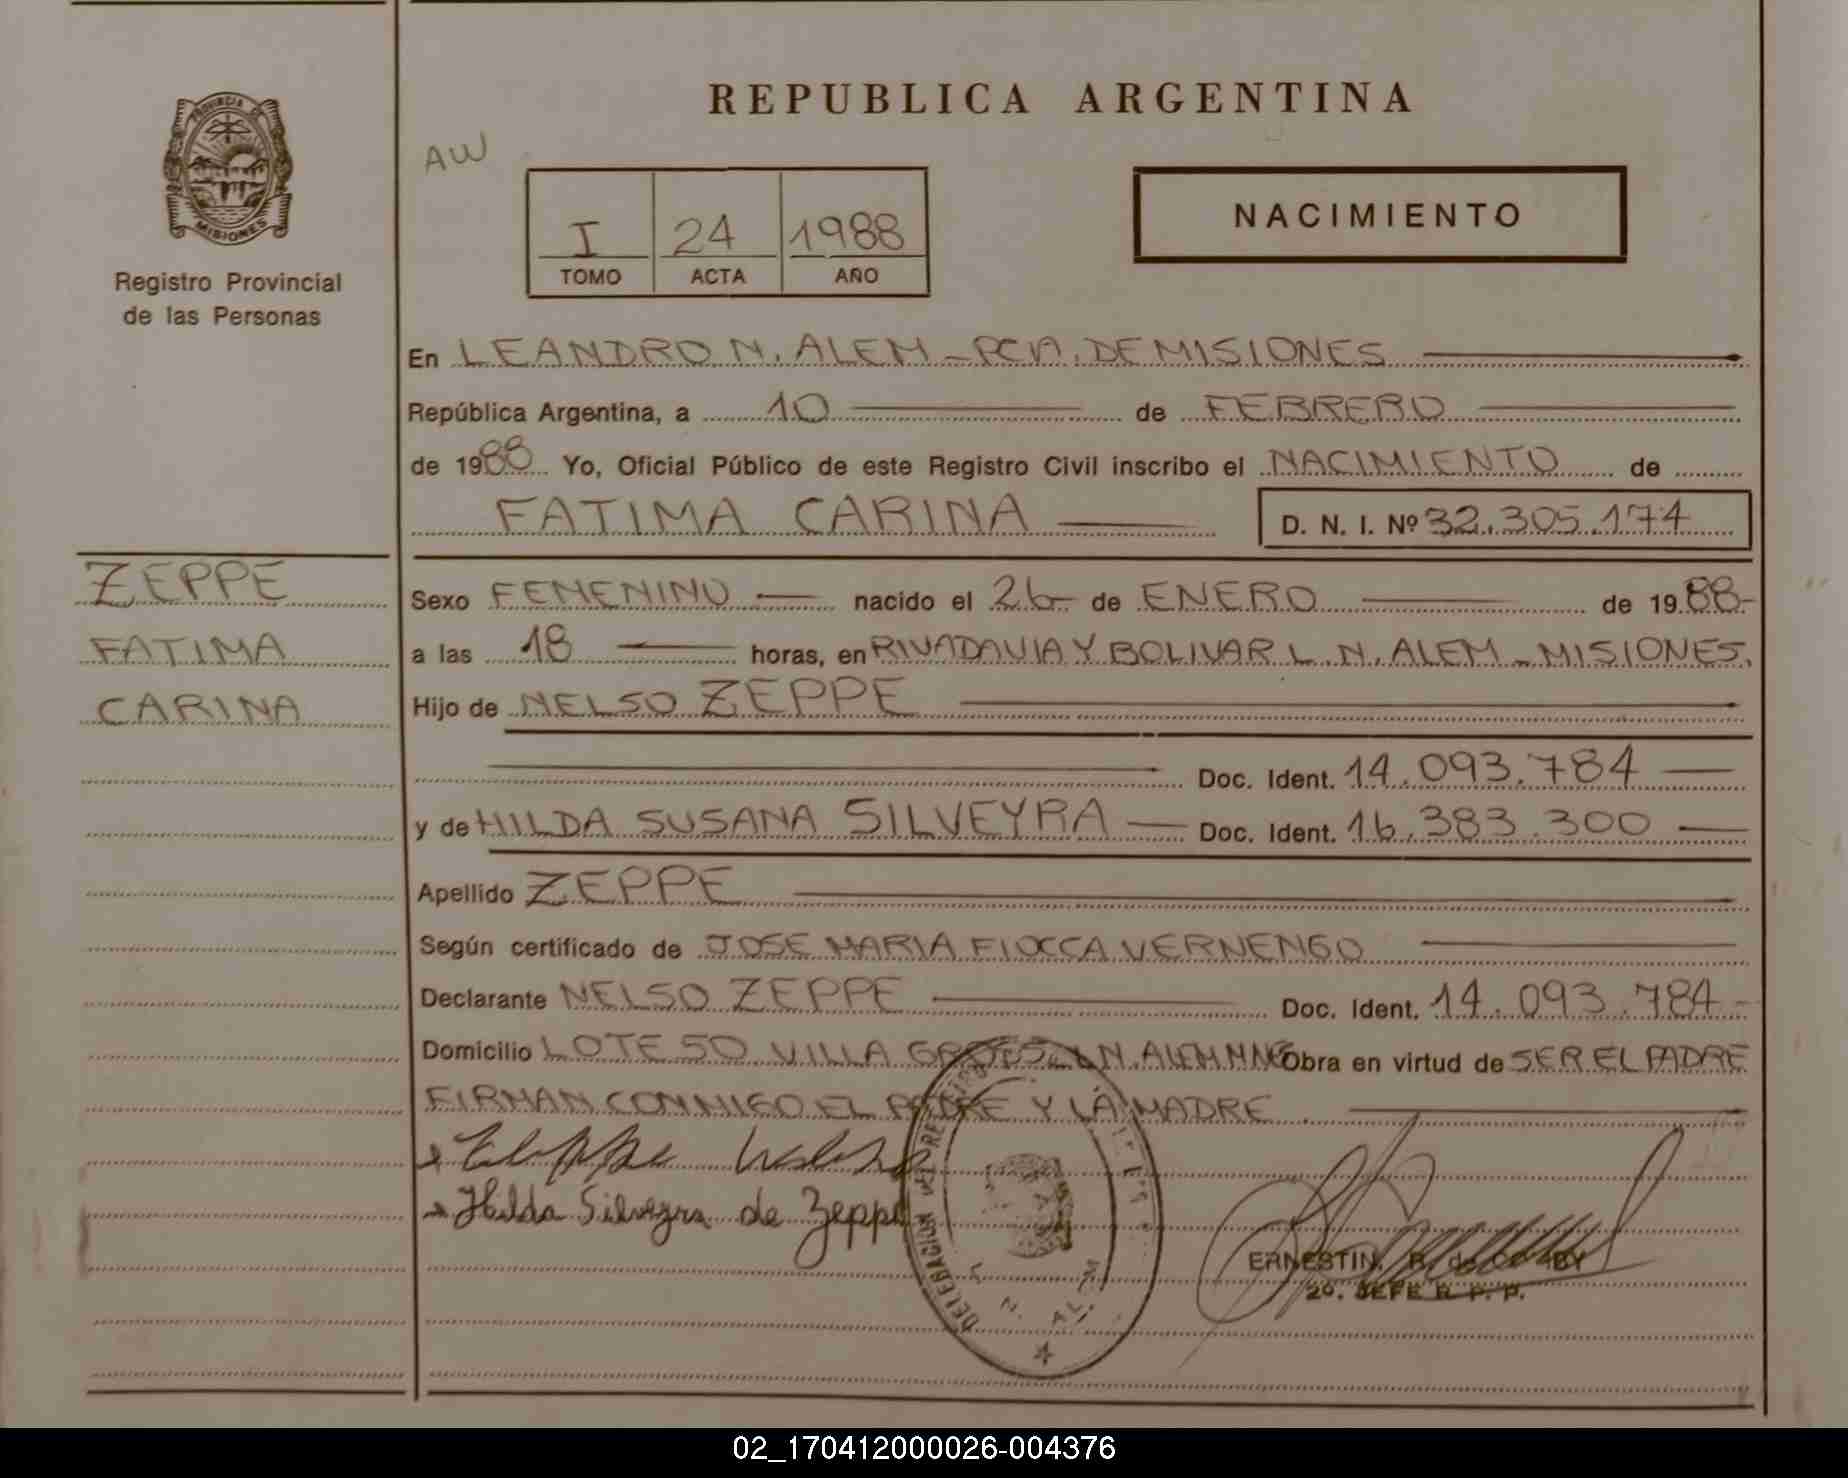 PROVINCIA DE
MISIONES
Registro Provincial
de las Personas
REPUBLICA ARGENTINA
AW
I 24 1988
TOMO ACTA AÑO
NACIMIENTO
En LEANDRO N. ALEM - PCIA. DE MISIONES
República Argentina, a 10 de FEBRERO
de 1988 Yo, Oficial Público de este Registro Civil inscribo el NACIMIENTO de
FATIMA CARINA D. N. I. Nº 32.305.174
ZEPPE
FATIMA
CARINA
Sexo FEMENINO nacido el 26 de ENERO de 1988-
a las 18 horas, en RIVADAVIA Y BOLIVAR L. N. ALEM - MISIONES.
Hijo de NELSO ZEPPE
Doc. Ident. 14.093.784
y de HILDA SUSANA SILVEYRA Doc. Ident. 16.383.300
Apellido ZEPPE
Según certificado de JOSE MARIA FIOCCA VERNENGO
Declarante NELSO ZEPPE Doc. Ident. 14.093.784-
Domicilio LOTE 50 VILLA L.N. ALEM MNES Obra en virtud de SER EL PADRE
FIRMAN CONMIGO EL PADRE Y LA MADRE.
Zeppe Nelso
Hilda Silveyra de Zeppe
DELEGACION
L. N. ALEM
ERNESTIN. R. de
2º. JEFE R. P. P.
02_170412000026-004376